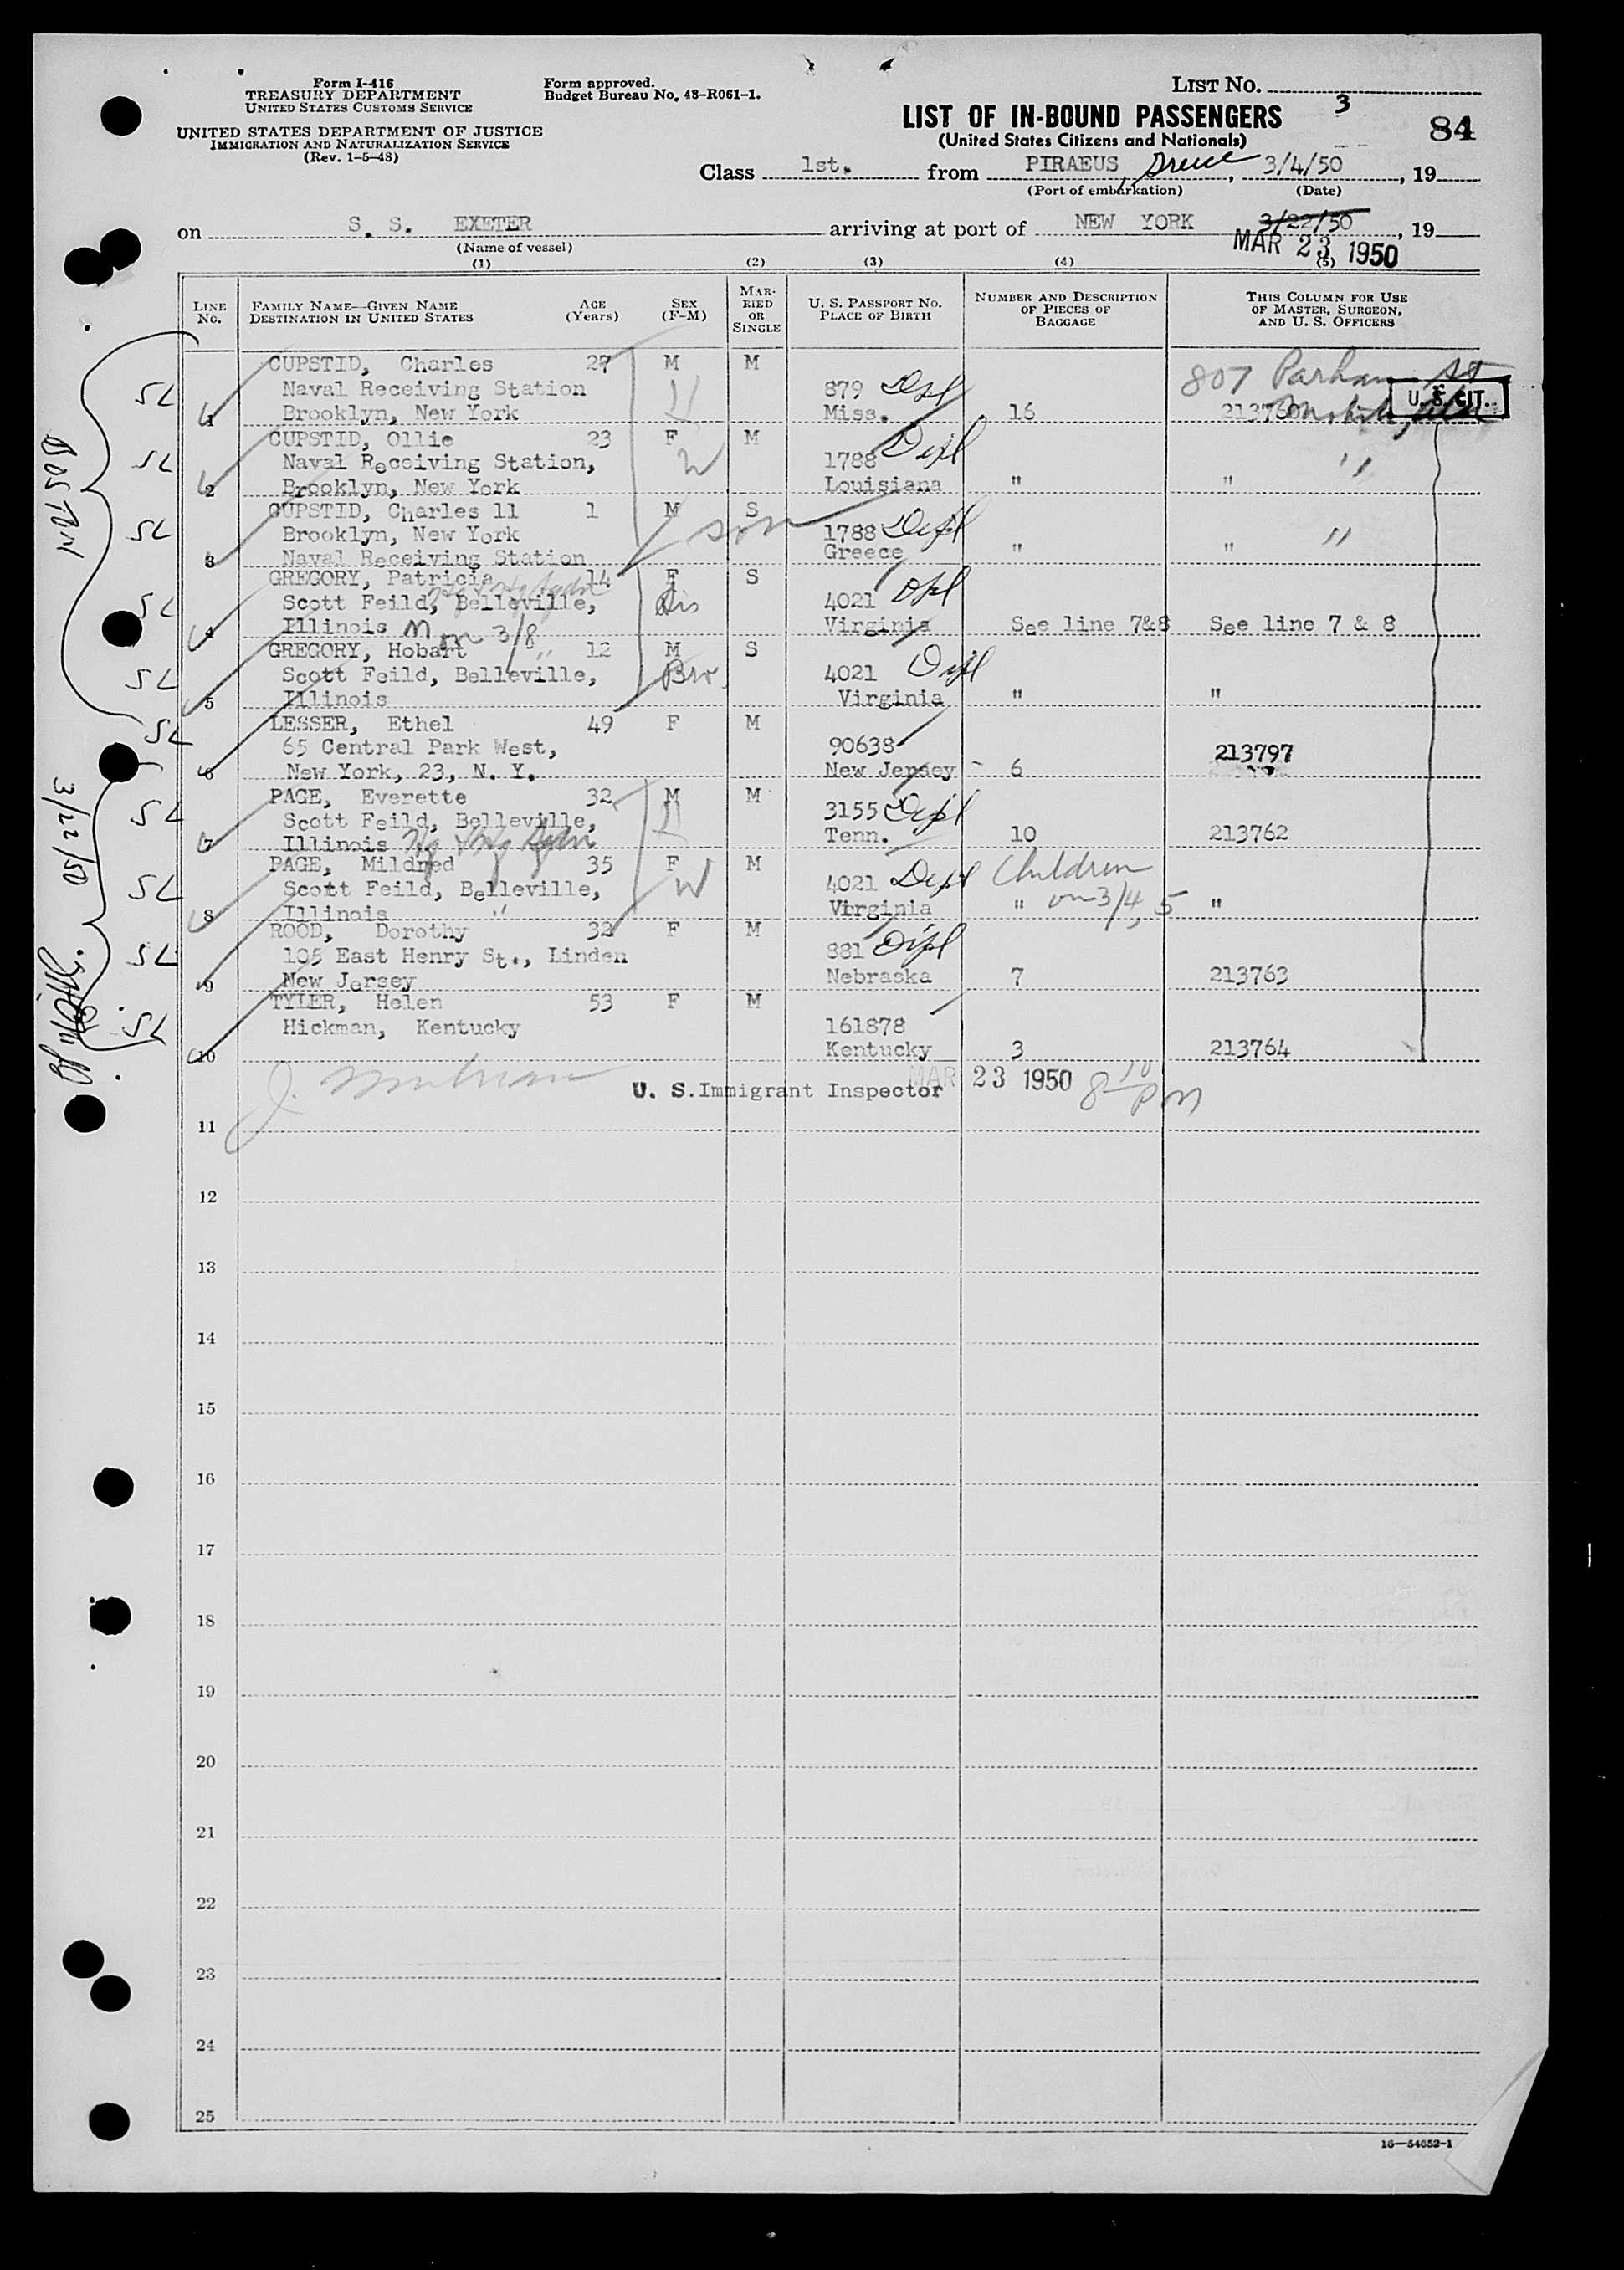 Form I-416
TREASURY DEPARTMENT
UNITED STATES CUSTOMS SERVICE
UNITED STATES DEPARTMENT OF JUSTICE
IMMIGRATION AND NATURALIZATION SERVICE
(Rev. 1-5-48)
Form approved.
Budget Bureau No. 48-R061-1.
LIST NO.
3
84
LIST OF IN-BOUND PASSENGERS
(United States Citizens and Nationals)
Class 1st. from PIRAEUS, 3/4/50, 19
(Port of embarkation) (Date)
on S. S. EXETER arriving at port of NEW YORK 3/22/50, 19
(Name of vessel)
MAR 23 1950
(1) (2) (3) (4) (5)
LINE NO.
FAMILY NAME—GIVEN NAME
DESTINATION IN UNITED STATES
AGE (Years)
SEX (F-M)
MARRIED OR SINGLE
U. S. PASSPORT NO.
PLACE OF BIRTH
NUMBER AND DESCRIPTION
OF PIECES OF
BAGGAGE
THIS COLUMN FOR USE
OF MASTER, SURGEON,
AND U. S. OFFICERS
CUPSTID, Charles 27 M M
807 Parham St
Naval Receiving Station 879 Dipl
U. S. CIT.
1 Brooklyn, New York Miss. 16 213760
CUPSTID, Ollie 23 F M
Naval Receiving Station, W 1788 Dipl "
2 Brooklyn, New York Louisiana " "
CUPSTID, Charles 11 1 M S
Brooklyn, New York son 1788 Dipl "
3 Naval Receiving Station Greece " "
GREGORY, Patricia 14 F S
Scott Feild, Belleville, Sis 4021 Dpl
4 Illinois M on 3/8 Virginia See line 7&8 See line 7 & 8
GREGORY, Hobart " 12 M S
Scott Feild, Belleville, Bro. 4021 Dipl
5 Illinois Virginia " "
LESSER, Ethel 49 F M
65 Central Park West, 90638
6 New York, 23, N. Y. New Jersey - 6 213797
PAGE, Everette 32 M M
Scott Feild, Belleville, H 3155 Dipl
7 Illinois Tenn. 10 213762
PAGE, Mildred 35 F M Children
Scott Feild, Belleville, W 4021 Dipl on 3/4, 5
8 Illinois " Virginia " "
ROOD, Dorothy 32 F M
105 East Henry St., Linden 881 Dipl
9 New Jersey Nebraska 7 213763
TYLER, Helen 53 F M
Hickman, Kentucky 161878
10 Kentucky 3 213764
U. S. Immigrant Inspector MAR 23 1950 8 10 PM
11
12
13
14
15
16
17
18
19
20
21
22
23
24
25
16—54652-1
SL
SL
SL
SL
SL
SL
SL
SL
SL
SL
BOSTON
3/22/50